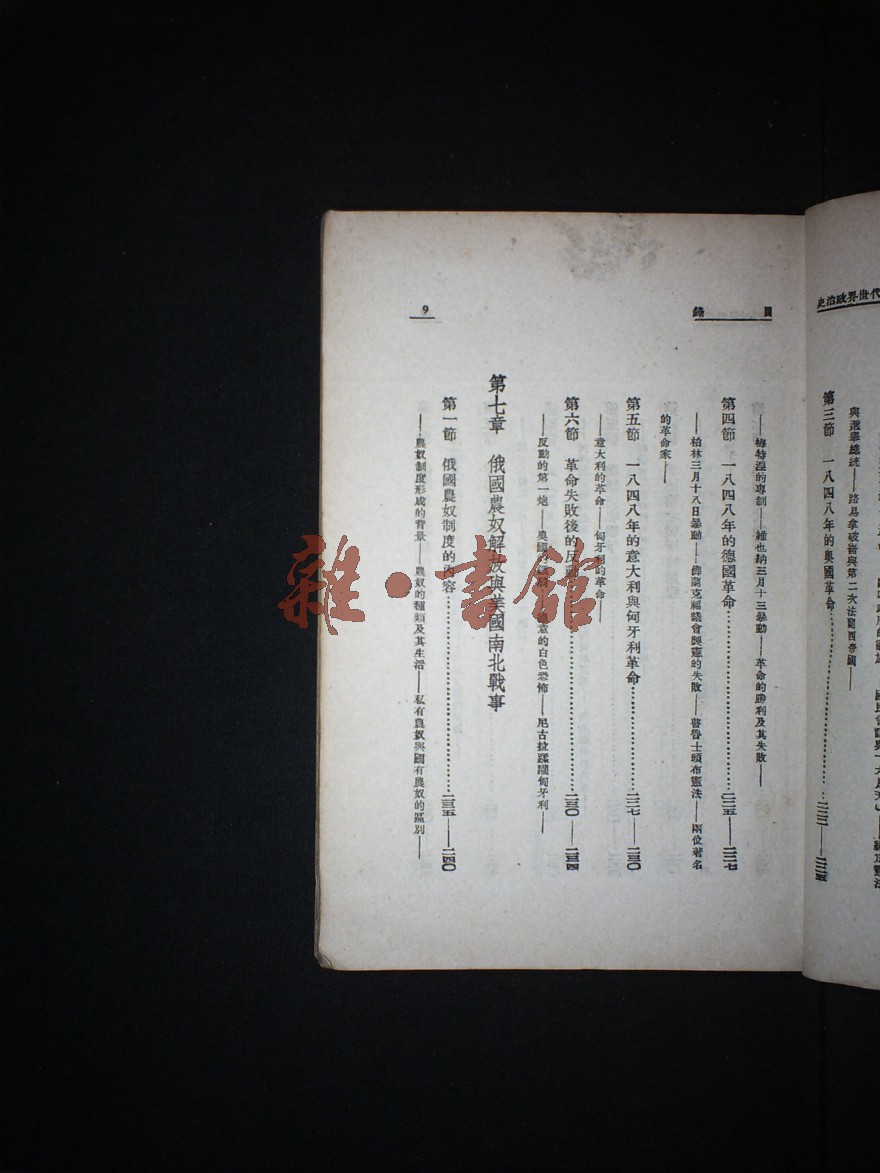 代世界政治史
與選舉總統——路易拿破崙與第二次法蘭西帝國——
第三節 一八四八年的奥國革命………二二二——二二五
目錄
9
——梅特湼的專制——維也納三月十三暴動——革命的勝利及其失敗——
第四節 一八四八年的德國革命………二二五——二二七
——柏林三月十八日暴動——佛蘭克福議會與憲的失敗——普魯士頒布憲法——兩位著名
的革命家——
第五節 一八四八年的意大利與匈牙利革命………二二七——二三〇
——意大利的革命——匈牙利的革命——
第六節 革命失敗後的反動………二三〇——二三四
——反動的第一炮——奥國的 的白色恐怖——尼古拉蹂躪匈牙利——
第七章 俄國農奴解放與美國南北戰事
第一節 俄國農奴制度的內容………二三五——二四〇
——農奴制度形成的背景——農奴的種類及其生活——私有農奴與國有農奴的區別——
雜·書館